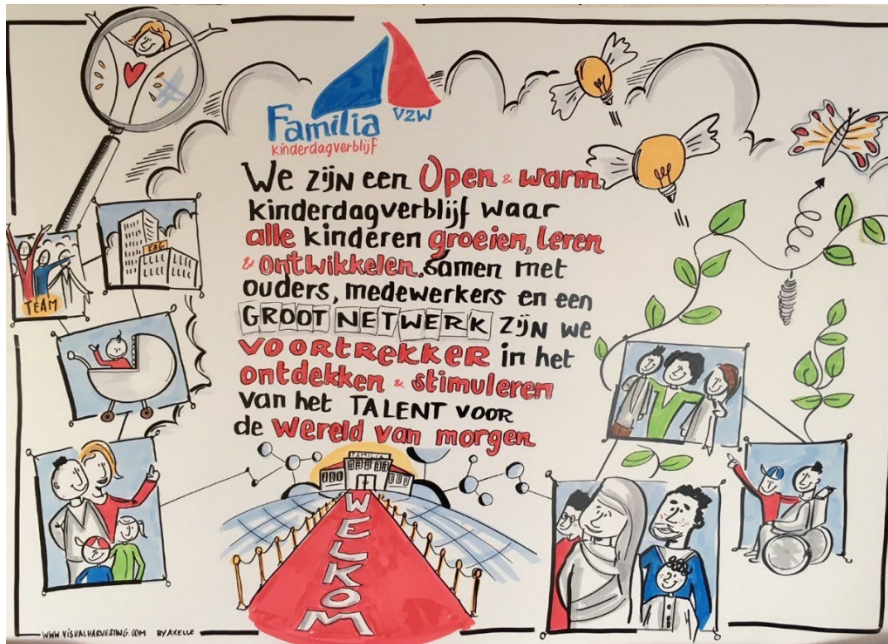 Familia vzw
kinderdagverblijf
We zijn een Open & warm
kinderdagverblijf waar
alle kinderen groeien, leren
& ontwikkelen, samen met
ouders, medewerkers en een
GROOT NETWERK zijn we
VOORTREKKER in het
ontdekken & stimuleren
van het TALENT voor
de wereld van morgen
TEAM
FAMILIA
WELKOM
WWW.VISUALHARVESTING.COM BY AXELLE